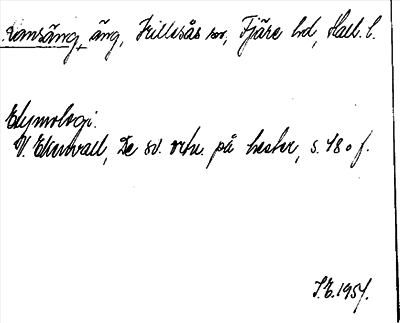 Ramsäng, äng, Killesås sn, Fjäre hd, Hall. l.
Etymologi.
V. Ekenvall, De sv. ortn. på hester, s. 180 f.
S.E. 1957.